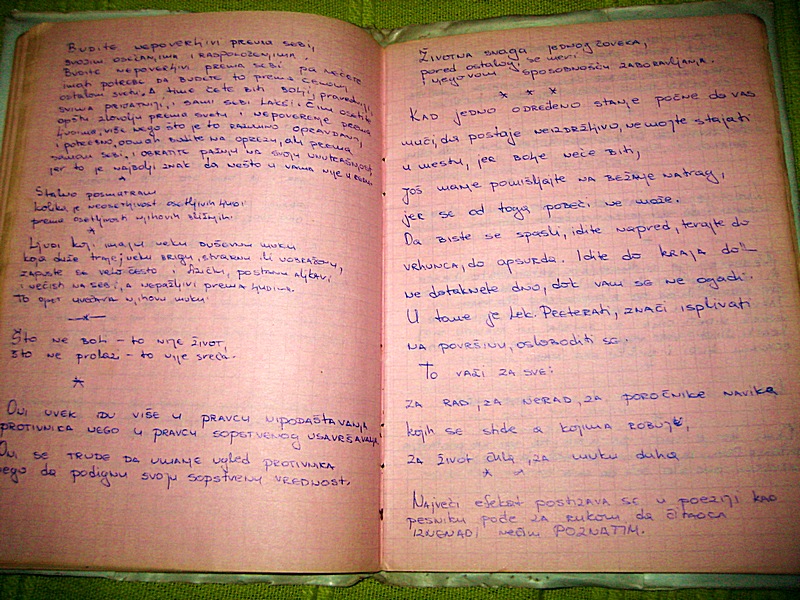 Budite nepoverljivi prema sebi,
svojim osećanjima i raspoloženjima.
Budite nepoverljivi prema sebi pa nećete
imati potrebe da budete to prema celom
ostalom svetu. A time ćete biti bolji, pravedniji,
svima prijatniji, i sami sebi lakši. Čim osetite
opštu zlovolju prema svetu i nepoverenje prema
ljudima, više nego što je to razumno opravdano
i potrebno, odmah budite na oprezu, ali prema
samom sebi, i obratite pažnju na svoju unutrašnjost,
jer to je najbolji znak da nešto u vama nije u redu.
*
Stalno posmatram
kolika je neosetljivost osetljivih ljudi
prema osetljivosti njihovih bližnjih.
*
Ljudi koji imaju neku duševnu muku
koja duže traje, neku brigu, stvarnu ili uobraženu,
zapuste se vrlo često i fizički, postanu aljkavi
i nečisti na sebi, a nepažljivi prema ljudima.
To opet uvećava njihovu muku.
*
Što ne boli - to nije život,
što ne prolazi - to nije sreća.
*
Oni uvek idu više u pravcu nipodaštavanja
protivnika nego u pravcu sopstvenog usavršavanja.
Oni se trude da umanje ugled protivnika
nego da podignu svoju sopstvenu vrednost.
Životna snaga jednog čoveka,
pored ostalog se meri
i njegovom sposobnošću zaboravljanja.
* * *
Kad jedno određeno stanje počne da vas
muči, da postaje neizdržljivo, nemojte stajati
u mestu, jer bolje neće biti,
još manje pomišljajte na bežanje natrag,
jer se od toga pobeći ne može.
Da biste se spasli, idite napred, terajte do
vrhunca, do apsurda. Idite do kraja dok
ne dotaknete dno, dok vam se ne ogadi.
U tome je lek. Preterati, znači isplivati
na površinu, osloboditi se.
To važi za sve:
za rad, za nerad, za poročnike navike
kojih se stide a kojima robuju,
za život čula, za muku duha
* *
Najveći efekat postizava se u poeziji kad
pesniku pođe za rukom da čitaoca
iznenadi nečim POZNATIM.